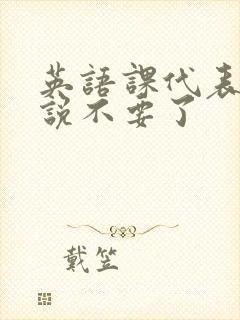 英語課代表
説不要了
戴笠